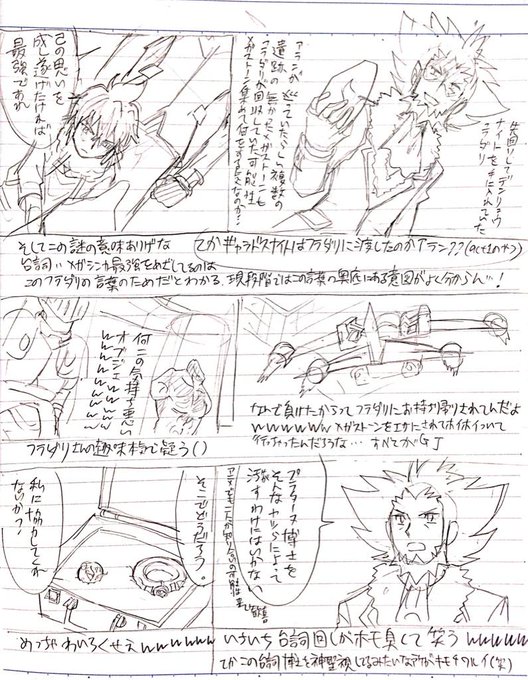 先回りしてデンリュウ
ナイトを手に入れていた
フラダリ
アランが巡っていたらしい複数の
遺跡の無かったメガストーンも
フラダリが回収していた可能性
メガストーン集めて何をする気なのか?
己の思いを
成し遂げたければ
最強であれ
てかギャラドスナイトはフラダリに渡したのかアラン??(act1のやつ)
そしてこの謎の意味ありげな
台詞…メガシンカ最強をめざしてるのは
このフラダリの言葉のためだとわかる。現段階ではこの言葉の奥底にある意図がよく分からん…!
なんで負けたからってフラダリにお持ち帰りされてんだよ
wwwwww メガストーンをエサにされてホイホイついて
行っちゃったんだろうな… すべてがGJ
何この気持ち悪い
オブジェwwwwwwwww
フラダリさんの趣味本気で疑う()
プラターヌ博士を
そんなヤツらによって
汚すわけにはいかない
そこでどうだろう。
私に協力してくれ
ないか?
いちいち台詞回しがホモ臭くて笑うwwwww
てかこの台詞博士を神聖視してるみたいな
めっちゃわいろくせえwwwwww